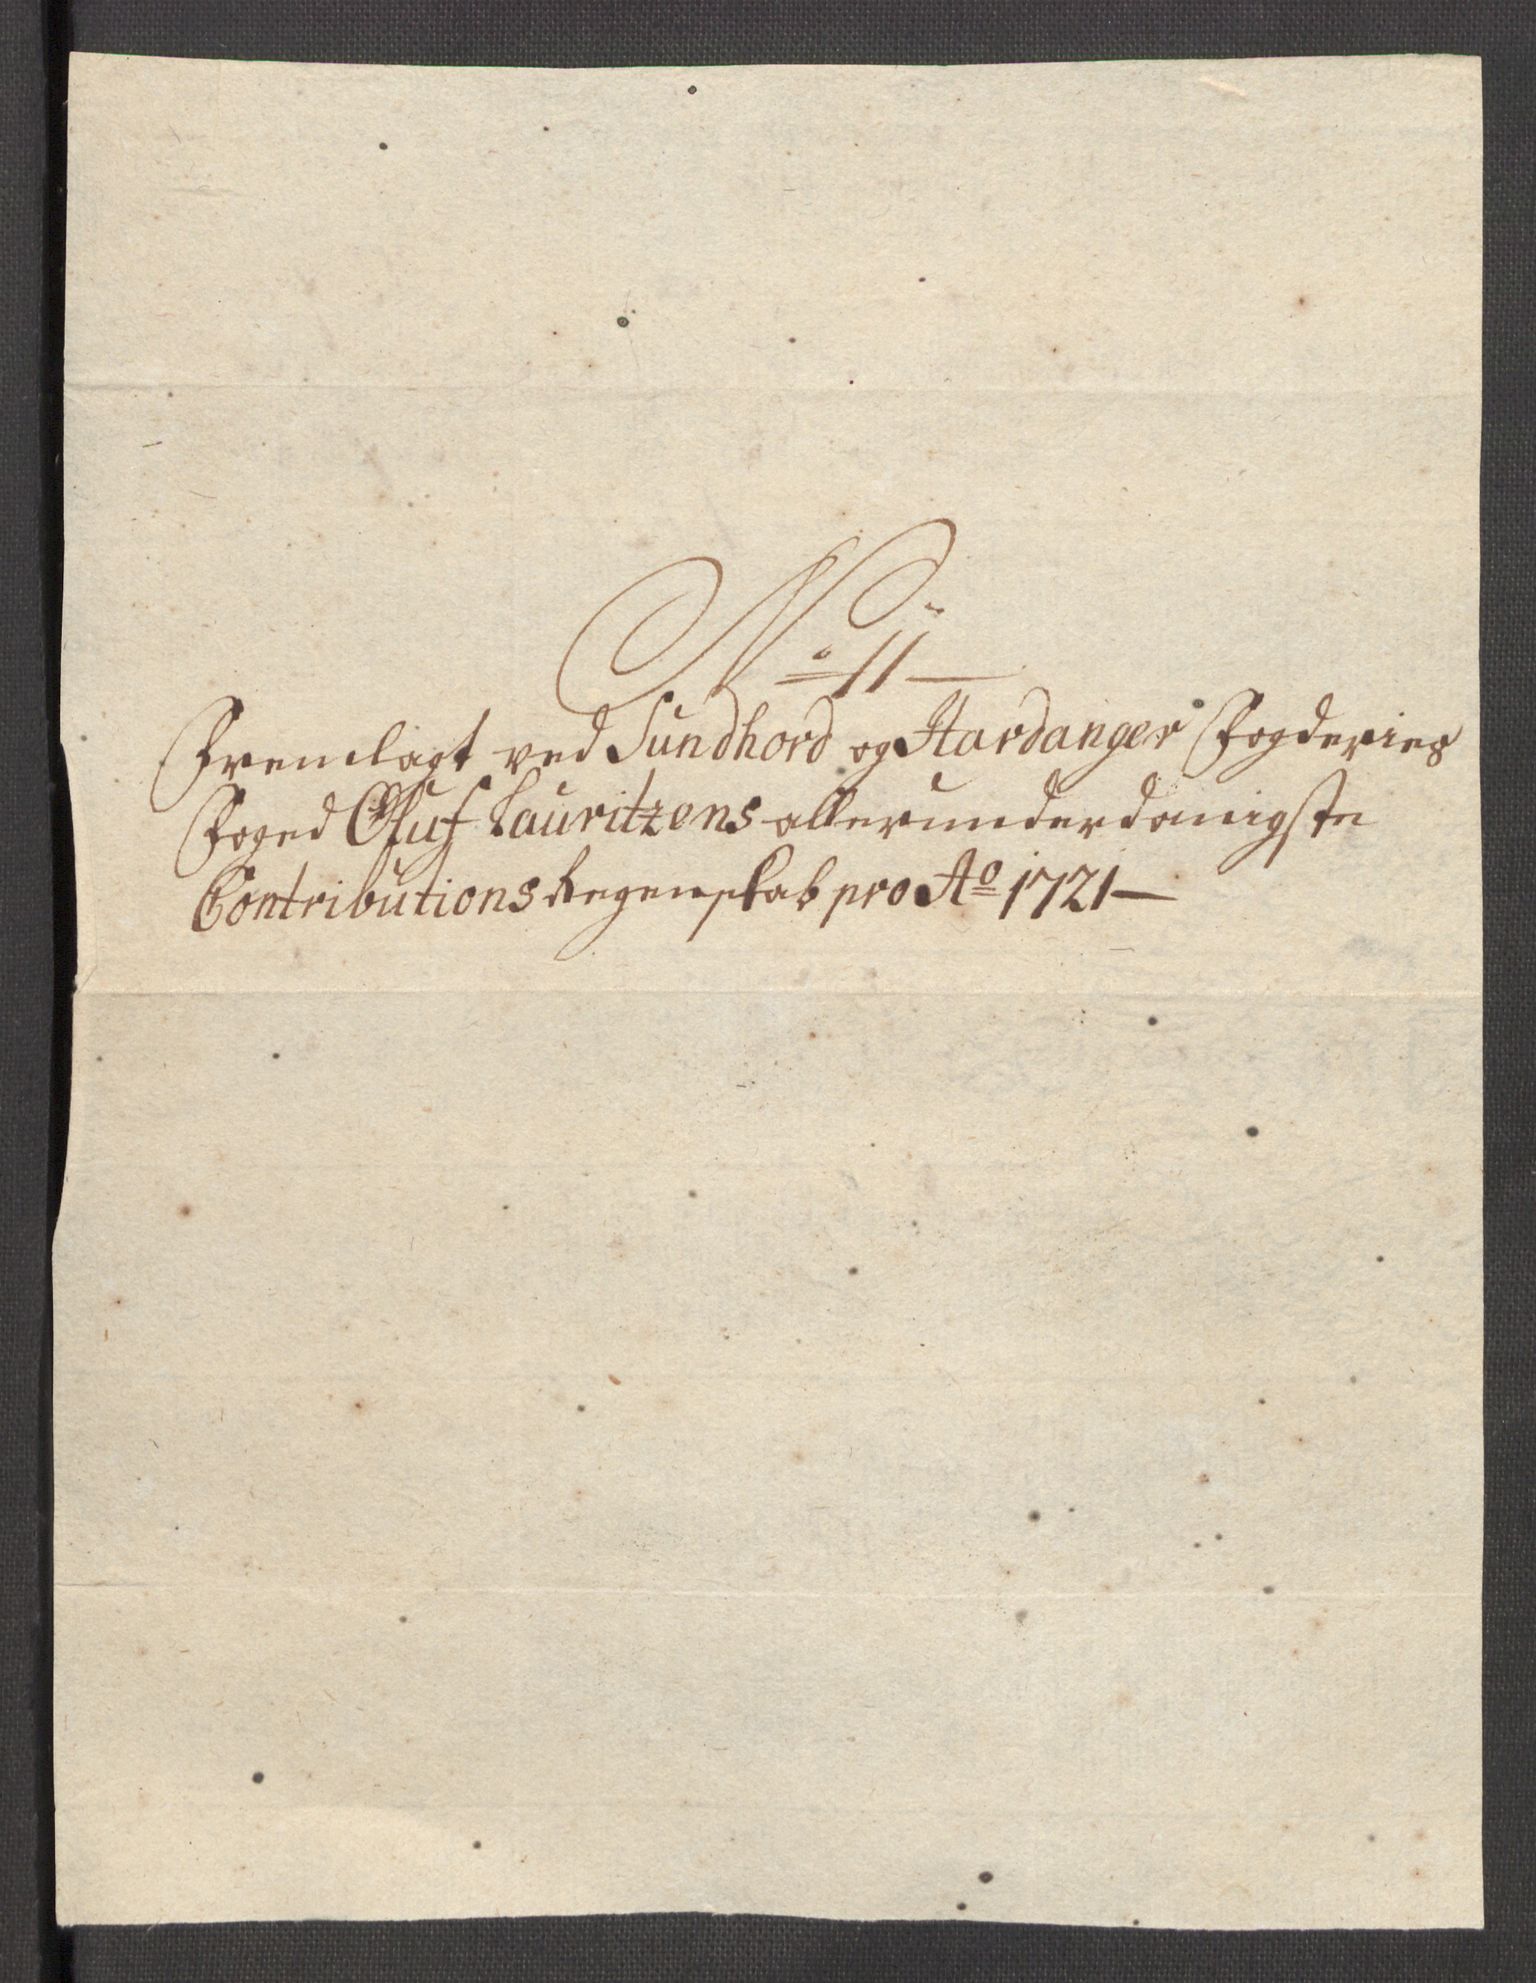 No 11
Fremlagt ved Sundhord og Hardanger Fogderies
Foged Oluf Lauritzens allerunderdanigste
Contributions Regenskab pro Ao 1721